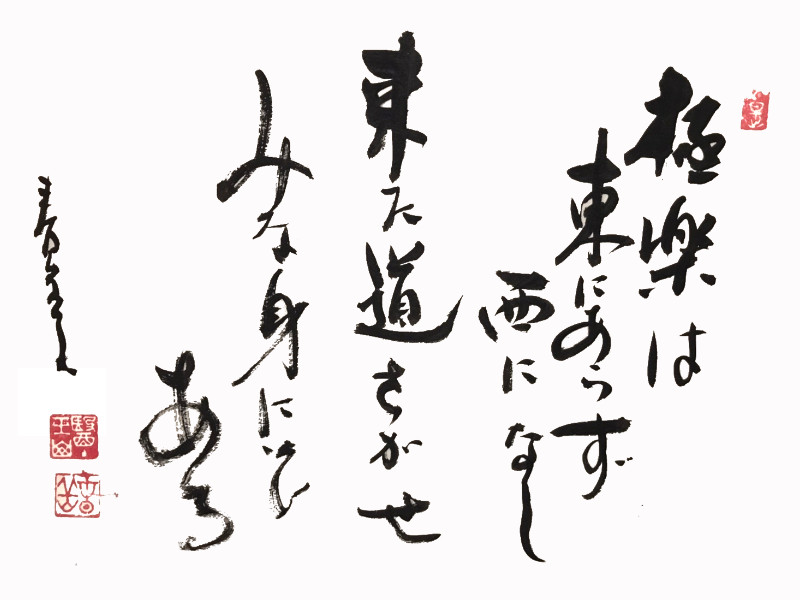 極楽は
東にあらず
西になし
来た道さがせ
みな身にぞ
ある